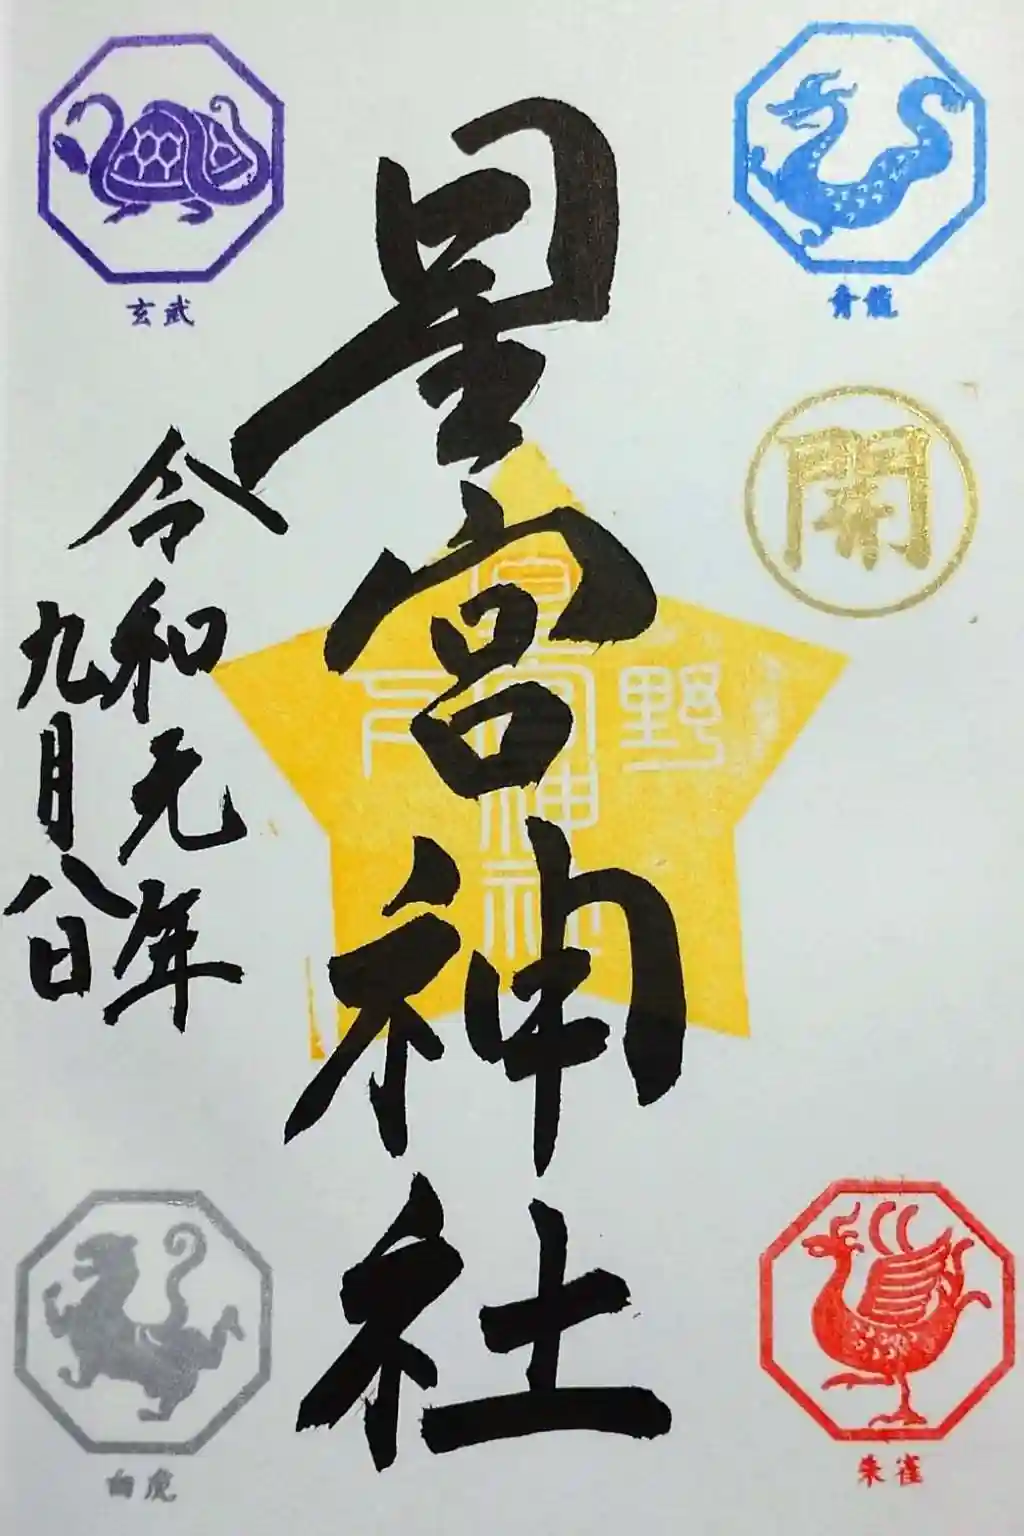 星宮神社
令和元年
九月八日
青龍
開
玄武
朱雀
白虎
下野
星宮神社